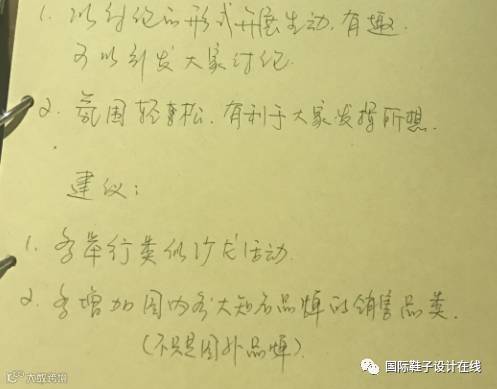 1. 以讨论的形式开展生动、有趣.
可以引发大家讨论.
2. 氛围轻松、有利于大家发挥所想.
建议:
1. 多举行类似沙龙活动.
2. 多增加国内各大知名品牌的销售品类.
(不只是国外品牌).
大数跨境
国际鞋子设计在线